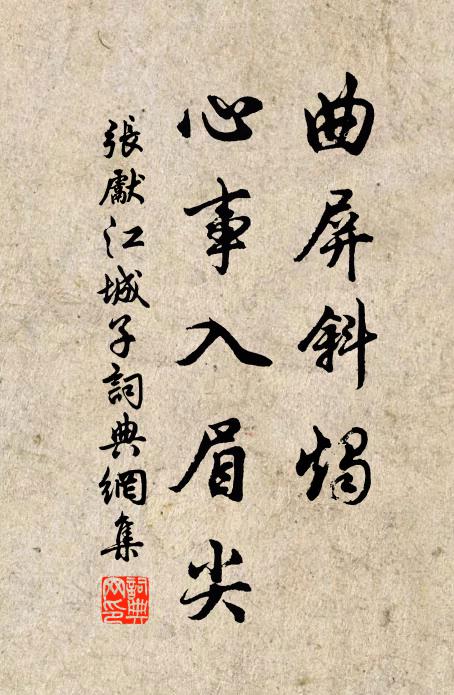 曲屏斜燭
心事入眉尖
張獻江城子詞典網集
詞典网印